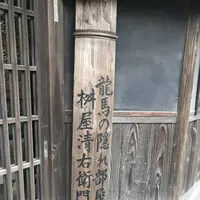 龍馬の隠れ部屋
桝屋清右衛門